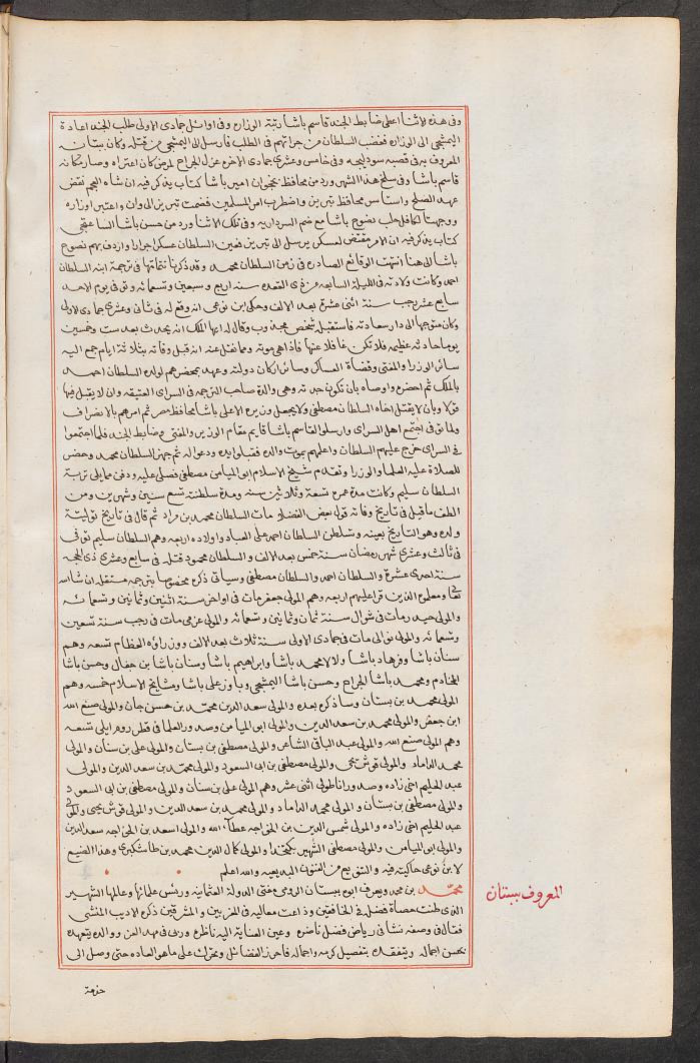 وفى هذه الاثنا اعطى ضابط الجند قاسم باشا رتبة الوزاره وفى اوائل جمادى الاولى طلب الجند اعادة
اليمشجى الى الوزاره فغضب السلطان من جراتهم فى الطلب فارسل الى اليمشجى من قتله وكان ببستانه
المعروف به فى قصبه سودليجه وفى خامس وعشرى جمادى الاخره عزل الجراح لمرض كان اعتراه وصار مكانه
قاسم باشا وفى سلخ هذا الشهر ورد من محافظ نخجوان امير باشا كتاب يذكر فيه ان شاه العجم نقض
عهد الصلح واستاسر محافظ تبريز واضطرب امر المسلمين فضمت تبريز الى وان واعتبر اوزاره
ووجهتا لكافل حلب نصوح باشا مع ضم السرداريه وفى تلك الاثنا ورد من حسن باشا الساعتجى
كتاب يذكر فيه ان الامر مقتض لعسكر يرسل الى تبريز فعين السلطان عسكرا جرارا واردف بهم نصوح
باشا الى هنا انتهت الوقائع الصادره فى زمن السلطان محمد وقد ذكرنا تتماتها فى ترجمة ابنه السلطان
احمد وكانت ولادته فى الليلة السابعه من ذى القعده سنة اربع وسبعين وتسعمائه وتوفى يوم الاحد
سابع عشر رجب سنة اثنى عشرة بعد الالف وحكى ابن نوعى انه وقع له فى ثانى وعشرى جمادى الاولى
وكان متوجها الى دار سعادته فاستقبله شخص مجذوب وقال له ايها الملك انه يحدث بعد ست وخمسين
يوما حادثه عظيمه فلا تكن غافلا عنها فاذا هى موته ومما نقل عنه انه قبل وفاته بثلاثة ايام جمع اليه
سائر الوزرا والمفتى وقضاة العساكر وسائر اركان دولته وعهد بمحضرهم لولده السلطان احمد
بالملك ثم احضره واوصاه بان تكون جدته وهى والدة صاحب الترجمه فى السراى العتيقه وان لا يقبل فيها
قولا وبان لا يقتل اخاه السلطان مصطفى ولا يجعل وزيره الا على باشا محافظ مصر ثم امرهم بالانصراف
ولما توفى اجتمع اهل السراى وارسلوا لقاسم باشا قايم مقام الوزير والمفتى وضابط الجند فلما اجتمعوا
فى السراى خرج عليهم السلطان واعلمهم بموت والده فقبلوا يده ودعوا له ثم جهز السلطان محمد وحضر
للصلاة عليه العلما والوزرا وتقدم شيخ الاسلام ابو الميامن مصطفى فصلى عليه ودفن مما يلى تربة
السلطان سليم وكانت مدة عمره تسعة وثلاثين سنه ومدة سلطنته تسع سنين وشهرين ومن
الطف ما قيل فى تاريخ وفاته قول بعض الفضلا مات السلطان محمد بن مراد ثم قال فى تاريخ تولية
ولده وهو التاريخ بعينه وتسلطن السلطان احمد على العباد واولاده اربعه وهم السلطان سليم توفى
فى ثالث وعشرى شهر رمضان سنة خمس بعد الالف والسلطان محمود قتله فى سابع وعشرى ذى الحجه
سنة احدى عشرة والسلطان احمد والسلطان مصطفى وسياتى ذكره مخصوصا بترجمه مستقله ان شاالله
تعا ومعلموه الذين قرا عليهم اربعه وهم المولى جعفر مات فى اواخر سنة اثنين وثمانين وتسعمائه
والمولى حيدر مات فى شوال سنة ثمان وثمانين وتسعمائه والمولى عزمى مات فى رجب سنة تسعين
وتسعمائه والمولى نوالى مات فى جمادى الاولى سنة ثلاث بعد الالف ووزراؤه العظام تسعه وهم
سنان باشا وفرهاد باشا ولالا محمد باشا وابراهيم باشا وسنان باشا بن جغال وحسن باشا
الخادم ومحمد باشا الجراح وحسن باشا اليمشجى وياوز على باشا ومشايخ الاسلام خمسه وهم
المولى محمد بن بستان وساذكره بعده والمولى سعد الدين محمد بن حسن جان والمولى صنع الله
ابن جعفر والمولى محمد بن سعد الدين والمولى ابو الميامن وصدور العلما فى قطر روم ايلى تسعه
وهم المولى صنع الله والمولى عبد الباقى الشاعر والمولى مصطفى بن بستان والمولى على بن سنان والمولى
محمد الداماد والمولى قوش يحيى والمولى مصطفى بن ابى السعود والمولى محمد بن سعد الدين والمولى
عبد الحليم اخى زاده وصدور اناطولى اثنى عشر وهم المولى على بن سنان والمولى مصطفى بن ابى السعود
والمولى مصطفى بن بستان والمولى محمد الداماد والمولى محمد بن سعد الدين والمولى قوش يحيى والمولى
عبد الحليم اخى زاده والمولى شمس الدين بن الخواجه عطاء الله والمولى اسعد بن الخواجه سعد الدين
والمولى ابو الميامن والمولى مصطفى الشهير بكتخدا والمولى كمال الدين محمد بن طاشكبرى وهذا الصنيع
لابن نوعى حاكيته فيه والتنويع من الفنون البديعيه والله اعلم
محمد بن محمد ويعرف ابوه ببستان الرومى مفتى الدولة العثمانيه ورئيس علمائها وعالمها الشهير
المعروف ببستان
الذى طنت حصاة فضله فى الخافقين وذاعت معاليه فى المغربين والمشرقين ذكره الاديب المنشى
فقال فى وصفه نشأ فى رياض فضل ناضره وعين العناية اليه ناظره وربى فى مهد العز ووالده يتعهده
بحسن اجماله ويتفقده بتفصيل كرمه واجماله فاحرز الفضائل وتحرك على ما هو العاده حتى وصل الى
خدمة